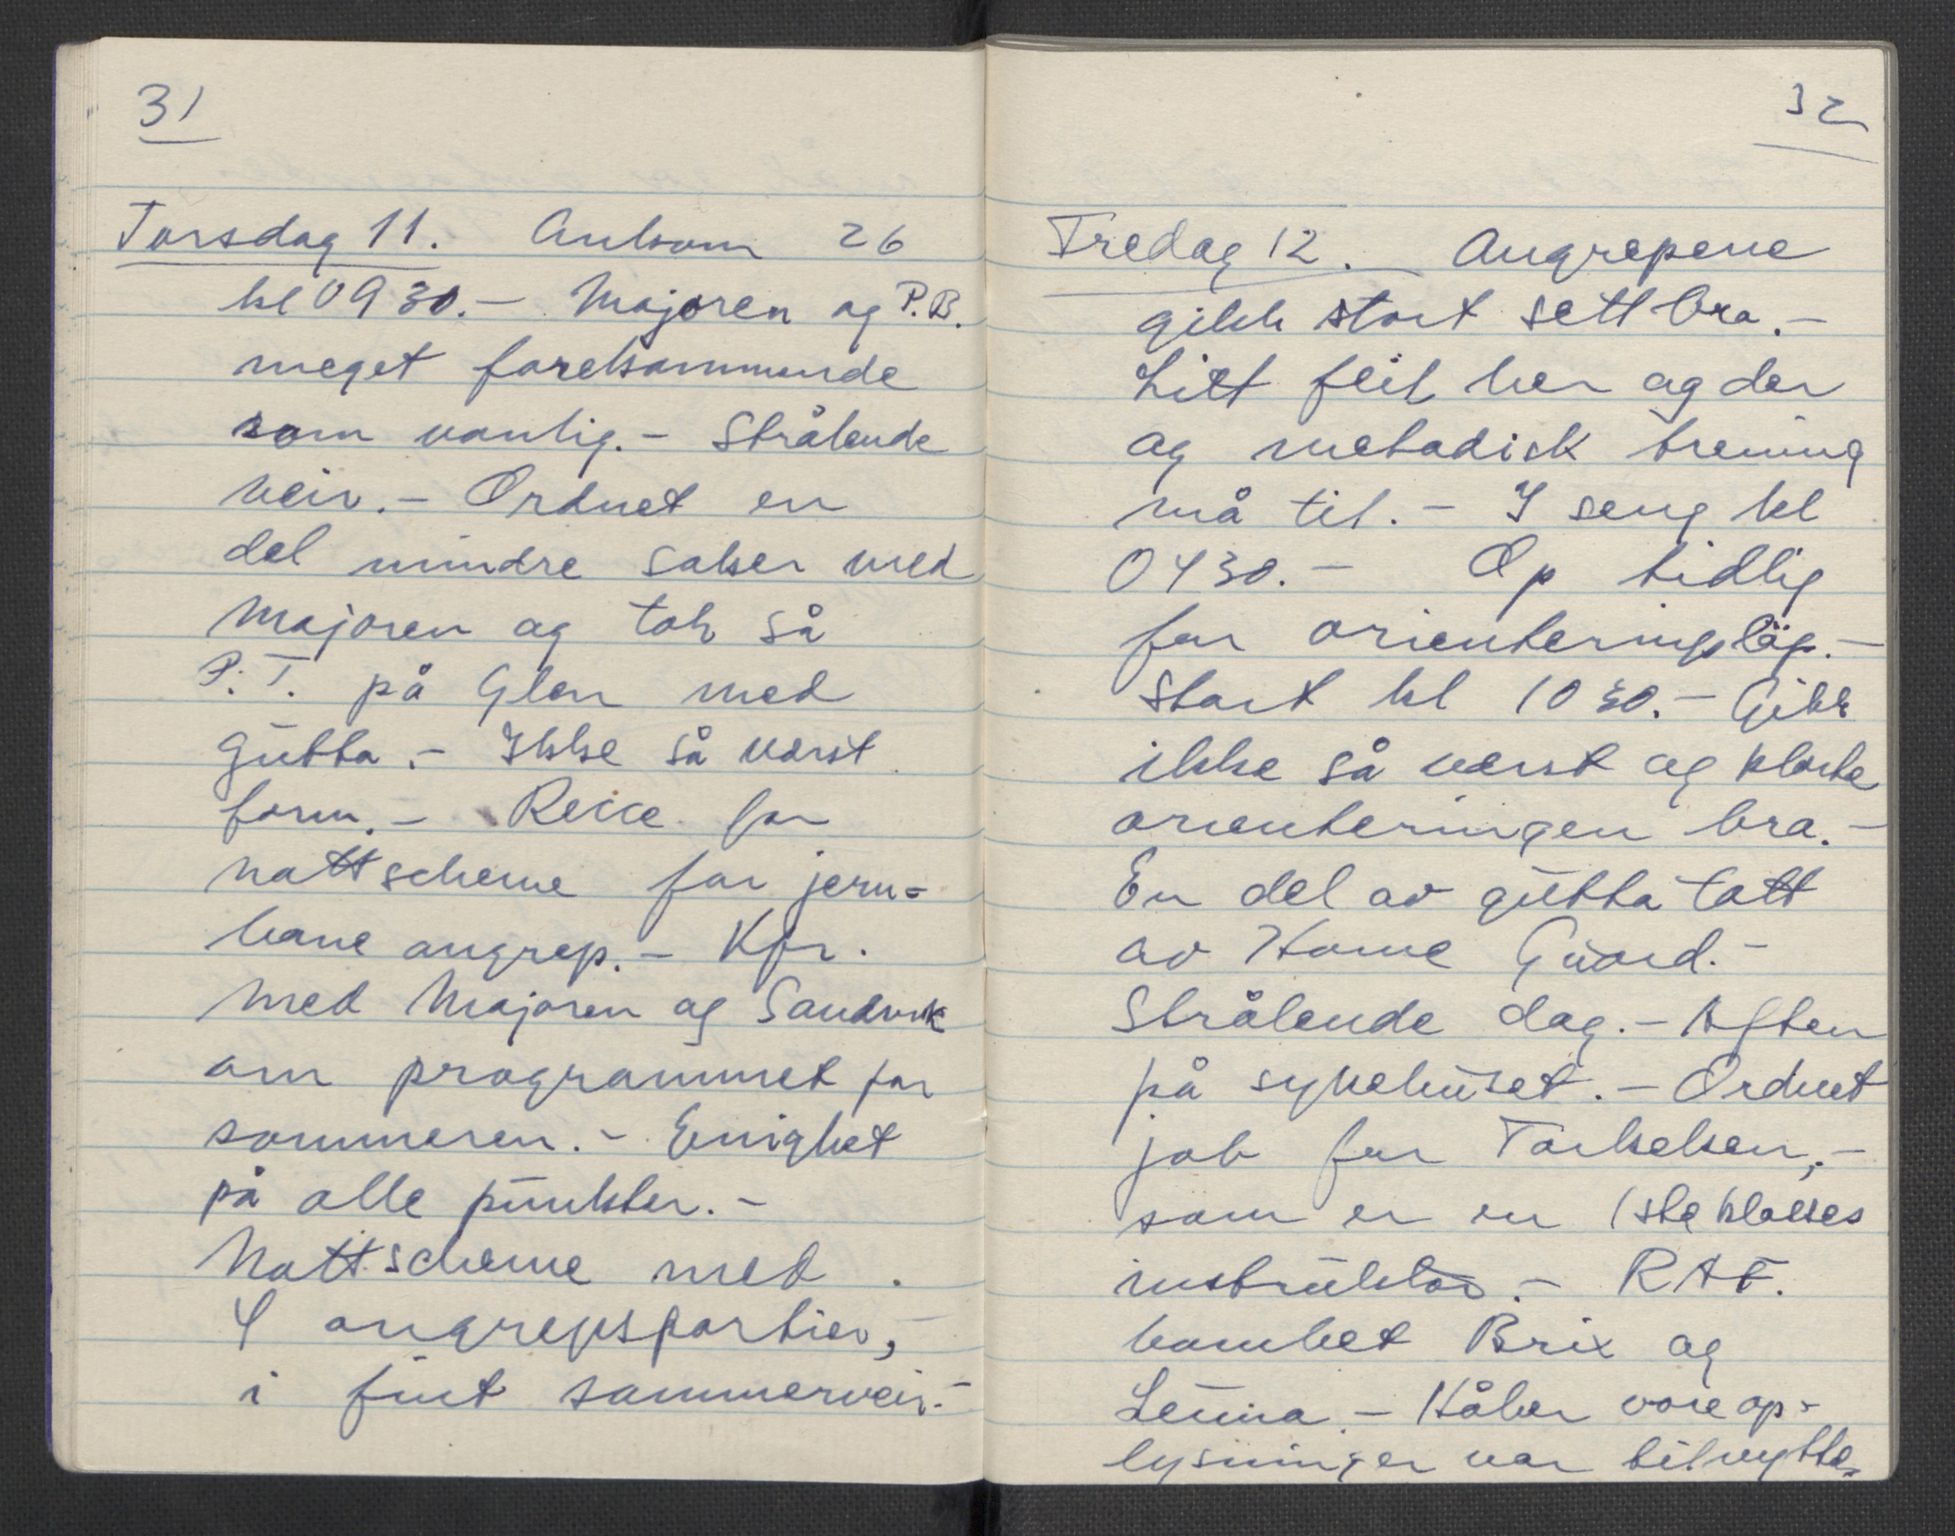 31
Torsdag 11. Ankom 26
kl 0930.- Majoren og P.B.
meget forekommende
som vanlig.- Strålende
veir.- Ordnet en
del mindre saker med
Majoren og tok så
P.T. på Glen med
gutta.- Ikke så værst
form.- Recce for
nattscheme for jern-
bane angrep.- Kfr.
med Majoren og Sandvik
om programmet for
sommeren.- Enighet
på alle punkter.-
Nattscheme med
4 angrepspartier,-
i fint sommerveir.-
32
Fredag 12. Angrepene
gikk stort sett bra.-
Litt feil her og der
og metodisk trening
må til.- I seng kl
0430.- Op tidlig
for orienteringsløp.-
Start kl 1030.- Gikk
ikke så værst og klarte
orienteringen bra.-
En del av gutta tatt
av Home Guard.-
Strålende dag.- Aften
på sykehuset.- Ordnet
job for Torkelsen,-
som er en 1ste klasses
instruktør.- RAF.
bombet Brix og
Leuna.- Håber våre op-
lysninger var til nytte.